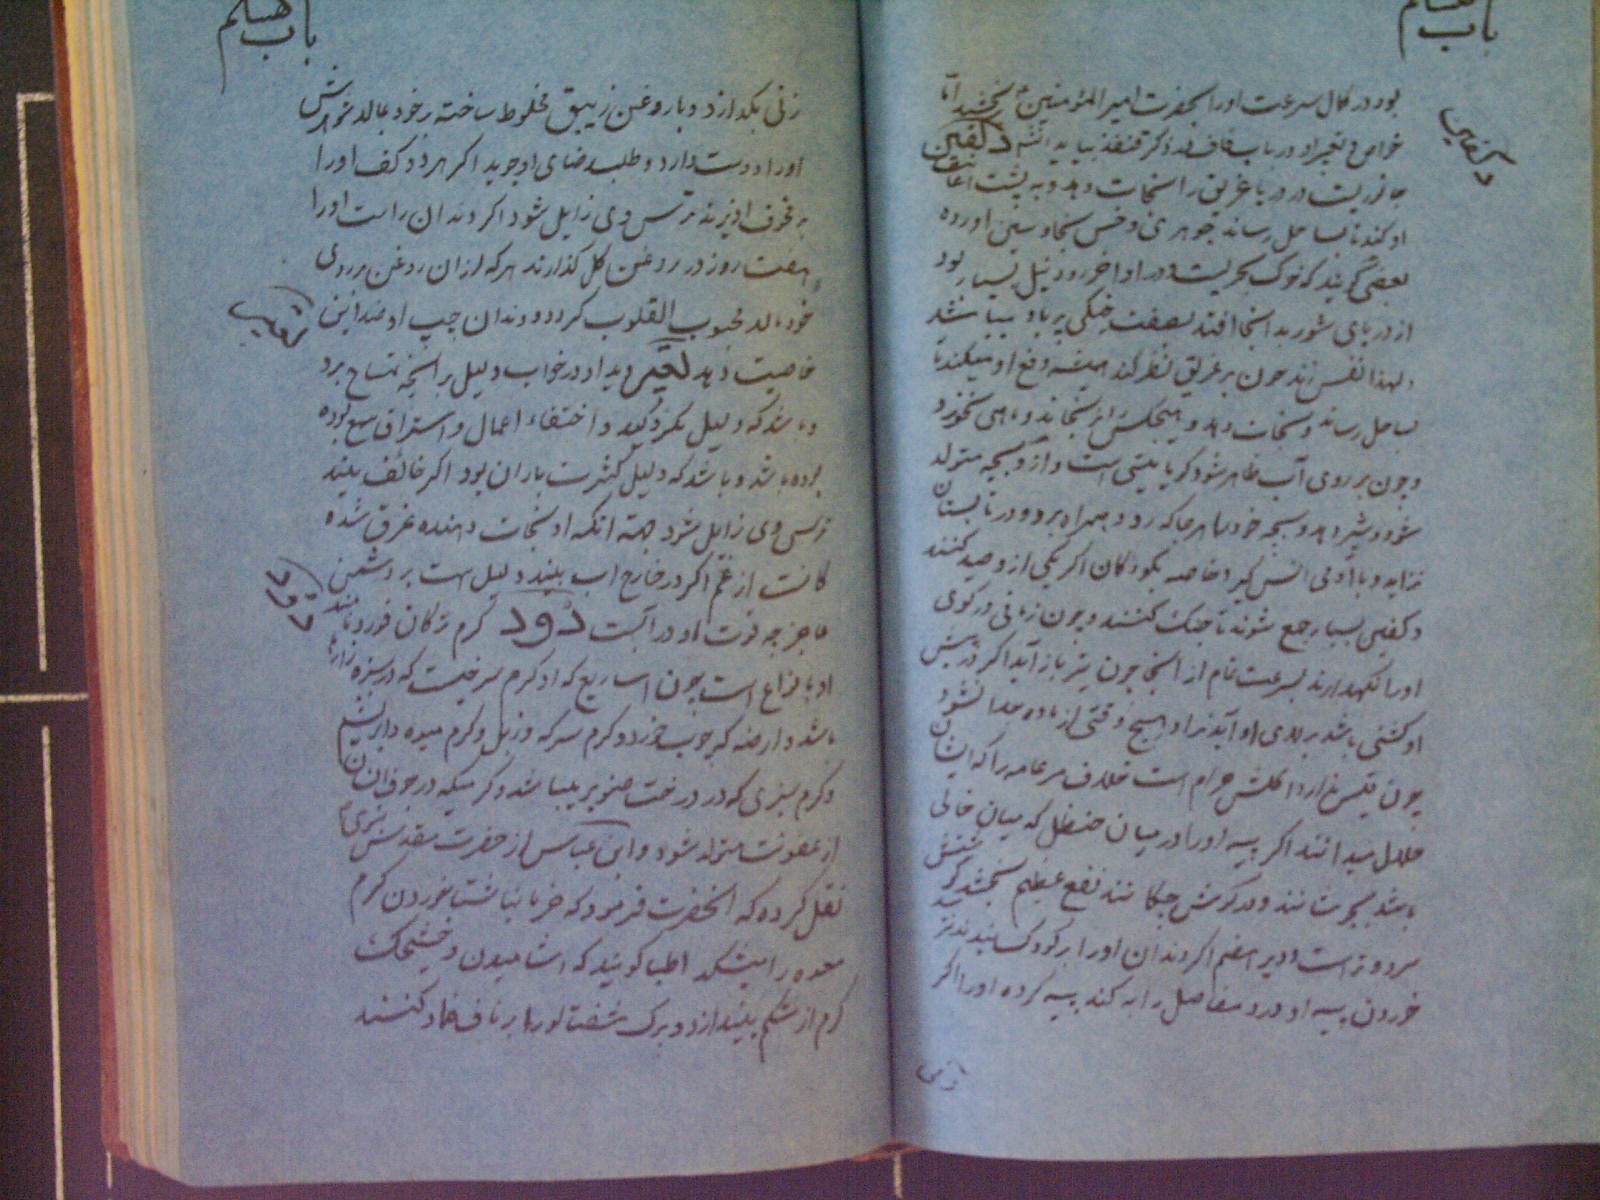 باب هشتم
بود در کمال سرعت او را آنحضرت امیر المؤمنین بخشید اما
خواص و تعبیر او در باب قاف در ذکر قنفذ بیاید انشه دلفین
دلفین
جانوریست در دریا غریق را نجات دهد و به پشت اعانت
او کند تا بساحل رساند جوهری و خس بجاء و سین آورده
بعضی گویند که خوک بحریست و در اواخر رود نیل بسیار بود
از دریای شور بد انجا افتد بصفت خیکی پر باد
و لهذا نفس زند چون بر غریق نظر کند همیشه دفع او میکند تا
بساحل رساند و نجات دهد و هیچکس را نرنجاند و ماهی نخورد
و چون بر روی آب ظاهر شود کویا میتی است و ازو بچه متولد
شود و شیر دهد و بچه خود را هر جا که رود همراه برد و در تابستان
نزاید و با آدمی انس گیرد خاصه بکودکان اگر یکی ازو صید کنند
دلفین بسیار جمع شوند تا جنک کنند و چون زمانی در کوی
او را نگهدارند بسرعت تمام از انجا چون تیز باز آید اگر در پیش
او کشتی باشد بر بالای او آید نر او هیچ وقتی از ماده جدا نشود
چون فلس ندارد اکلش حرام است خلاف مر عامه را که ایشان
حلال میدانند اگر پیه او را در میان حنظل که میان خالی
باشد بجوشانند و در گوش چکانند نفع عظیم بخشد
سرد و تر است و دیر هضم اگر دندان او را بر کودک بندند نترسد
خوردن پیه او درد مفاصل را به کند پیه گرده او را اگر
زنی
باب هشتم
زنی بگدازد و با روغن زیبق مخلوط ساخته بر خود بمالد شوهرش
او را دوست دارد و طلب رضای او جوید اگر هر دو کف او را
بر مخوف آویزند ترس وی زایل شود اگر دندان راست او را
هفت روز در روغن گل گذارند هر که از ان روغن بر روی
خود مالد محبوب القلوب گردد و دندان چپ او ضد این
تعبیر
خاصیت دهد تعبیر دیدا و در خواب دلیل بر آنچه تمساح برد
و باشد که دلیل مکر و کید و اختفاء اعمال و استراق سمع بوده
بوده باشد و باشد که دلیل کثرت باران بود اگر خائف بیند
ترس وی زایل شود جهة انکه او نجات دهنده غرق شده
کانست از غم اگر در خارج اب بیند دلیل است بر دشمن
دود
عاجز چه قوت او در آبست دود کرم مژکان فرو مانند
او با نواع است چون اساریع که او کرم سرخیست که در سبزه زارها
باشد و ارضه که چوب خورد و کرم سرکه و زبل و کرم میوه و ابریشم
و کرم سبزی که در درخت صنوبر پیدا شد و کرمیکه در جوف انسان
از عفونت متولد شود و ابن عباس از حضرت مقدس نبوی
نقل کرده که آنحضرت فرمود که خرما بناشتا خوردن کرم
معده را میکشد اطبا گویند که اشامیدن وخشیحک
کرم از شکم بیندازد و برک شفتالو را بر ناف ضماد کنند